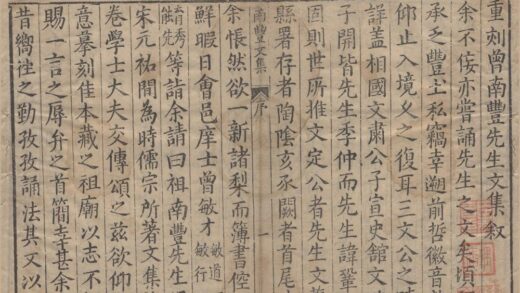 重刻曾南豐先生文集叙
余不佞亦嘗誦先生之文矣頃
承乏豐土私竊幸遡前哲徽音
仰止入境乂之復耳三文公之
詳蓋相國文肅公子宣史舘文
子開皆先生季仲而先生諱鞏
固則世所推文定公者先生文
縣署存者陶陰亥豕闕者首尾
南豐文集 序 一
余悵然欲一新諸梨而簿書倥
鮮暇日會邑庠士曾敏才敏道敏行
等請余請曰祖南豐先生
宋元祐間為時儒宗所著文集
卷學士大夫交傳頌之茲欲仰
意摹刻佳本藏之祖廟以志不
賜一言之辱弁之首簡幸甚余
昔嚮往之勤孜孜誦法其又以